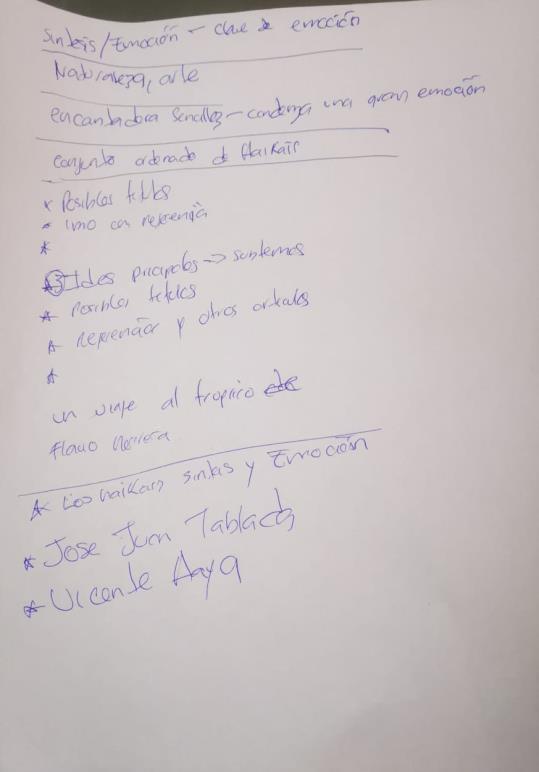 Sintesis/Emoción - clave de emoción
Naturaleza, arte
encantadora sencillez - condensa una gran emoción
conjunto ordenado de Haikais
* Posibles titulos
* uno con referencia
*
* 3 Ideas principales -> subtemas
* Posibles titulos
* Referencias y otros articulos
*
un viaje al tropico
Flavio Herrera
* Los haikais sintesis y Emoción
* Jose Juan Tablada
* Vicente Haya